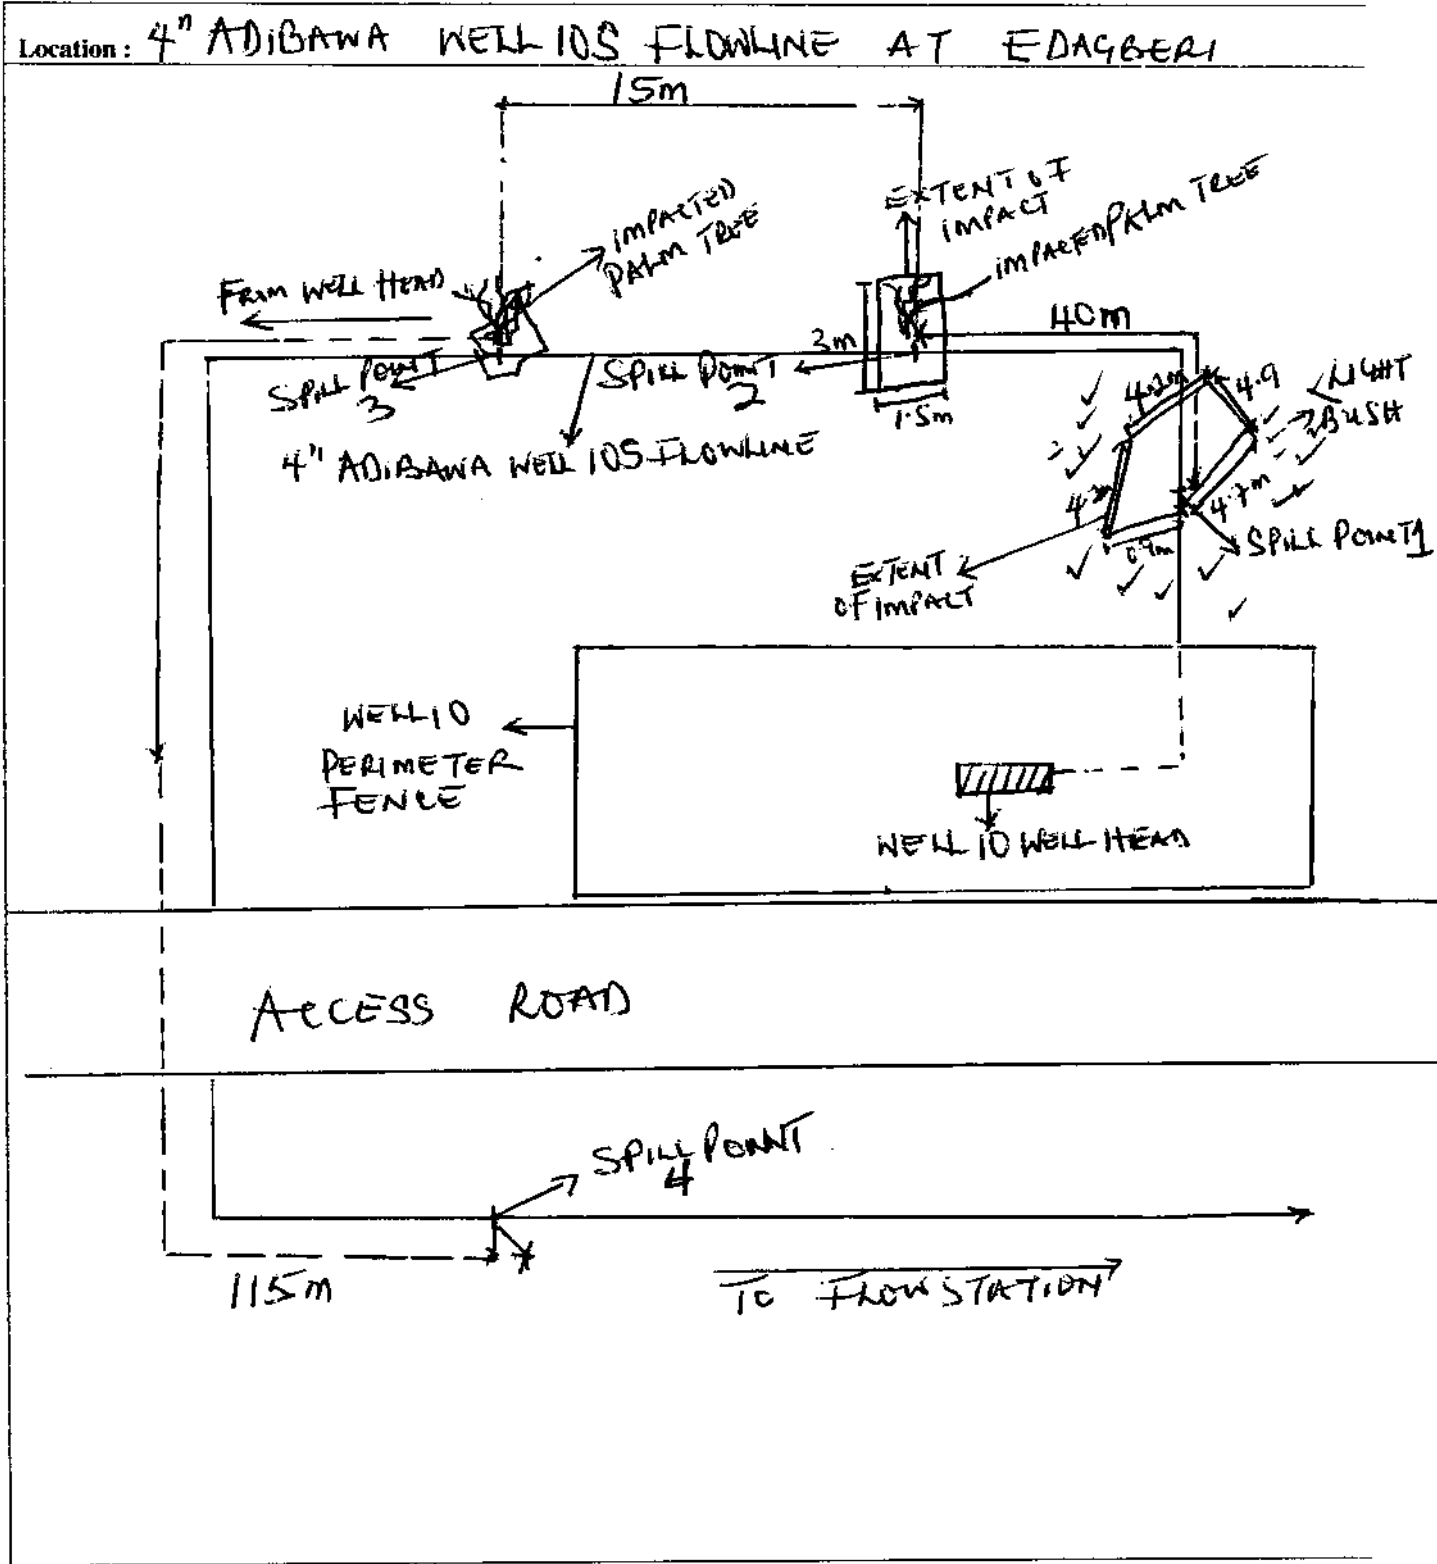 Location : 4" ADIBAWA WELL 10S FLOWLINE AT EDAGBERI
15m
EXTENT OF
IMPACT
IMPACTED PALM TREE
IMPACTED
PALM TREE
FROM WELL HEAD
40m
3m
SPILL POINT
3
SPILL POINT
2
1.5m
4.9
LIGHT
BUSH
4" ADIBAWA WELL 10S FLOWLINE
4.7m
SPILL POINT 1
0.9m
EXTENT
OF IMPACT
WELL 10
PERIMETER
FENCE
WELL 10 WELL HEAD
ACCESS ROAD
SPILL POINT
4
115m
TO FLOWSTATION